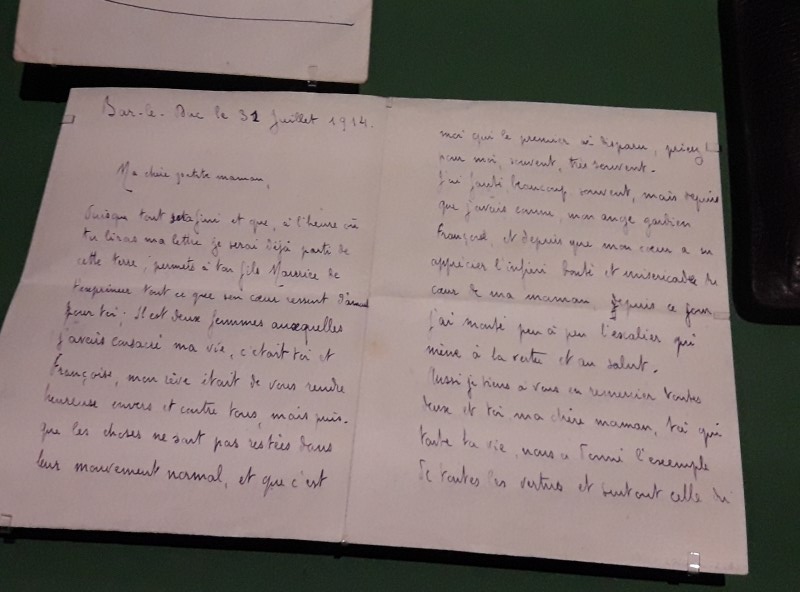 Bar-le-Duc le 31 Juillet 1914.
Ma chère petite maman,
Puisque tout est fini et que, à l'heure où
tu liras ma lettre je serai déjà parti de
cette terre, permets à ton fils Maurice de
t'exprimer tout ce que son cœur ressent d'amour
pour toi; Il est deux femmes auxquelles
j'avais consacré ma vie, c'était toi et
Françoise, mon rêve était de vous rendre
heureuse envers et contre tous, mais puis-
que les choses ne sont pas restées dans
leur mouvement normal, et que c'est
moi qui le premier ai disparu, priez
pour moi, souvent, très souvent.
J'ai fauté beaucoup, souvent, mais depuis
que j'avais connu, mon ange gardien
Françoise, et depuis que mon cœur a su
apprécier l'infini bonté et misericade du
cœur de ma maman, depuis ce jour,
j'ai monté peu à peu l'escalier qui
mène à la vertu et au salut.
Aussi je tiens à vous en remercier toutes
deux et toi ma chère maman, toi qui
toute ta vie, nous a donné l'exemple
de toutes les vertues et surtout celle du